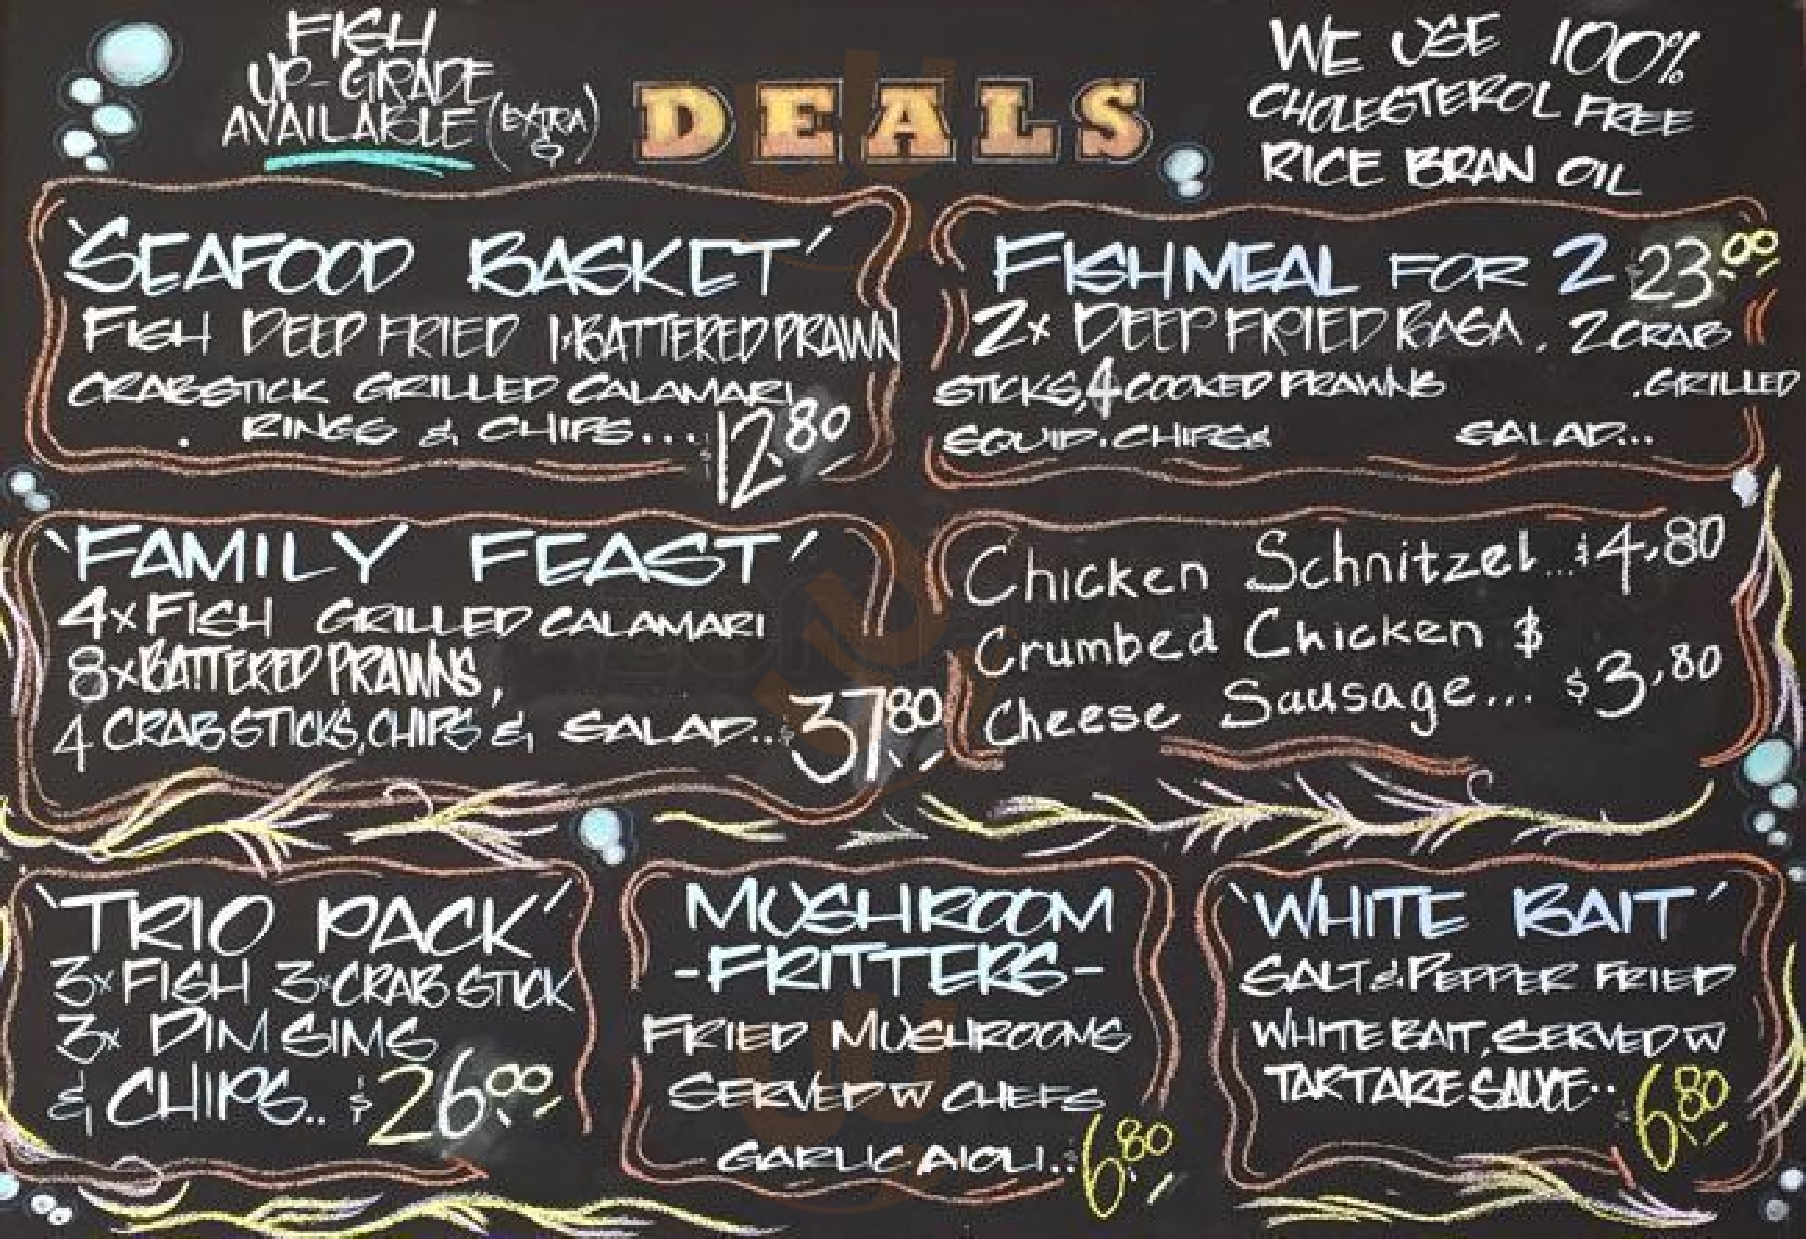 FISH
UP-GRADE
AVAILABLE (EXTRA $)
DEALS
WE USE 100%
CHOLESTEROL FREE
RICE BRAN OIL
'SEAFOOD BASKET'
FISH DEEP FRIED 1×BATTERED PRAWN
CRABSTICK GRILLED CALAMARI
RINGS & CHIPS... $12.80
FISH MEAL FOR 2 $23.00
2x DEEP FRIED BASA, 2 CRAB
STICKS, 4 COOKED PRAWNS .GRILLED
SQUID. CHIPS & SALAD...
'FAMILY FEAST'
4x FISH GRILLED CALAMARI
8x BATTERED PRAWNS,
4 CRABSTICKS, CHIPS & SALAD.. $37.80
Chicken Schnitzel... $4.80
Crumbed Chicken $
Cheese Sausage... $3.80
'TRIO PACK'
3x FISH 3x CRAB STICK
3x DIM SIMS
& CHIPS.. $26.00
MUSHROOM
-FRITTERS-
FRIED MUSHROOMS
SERVED W CHEFS
GARLIC AIOLI.. 6.80
'WHITE BAIT'
SALT & PEPPER FRIED
WHITE BAIT, SERVED W
TARTARE SAUCE.. 6.80